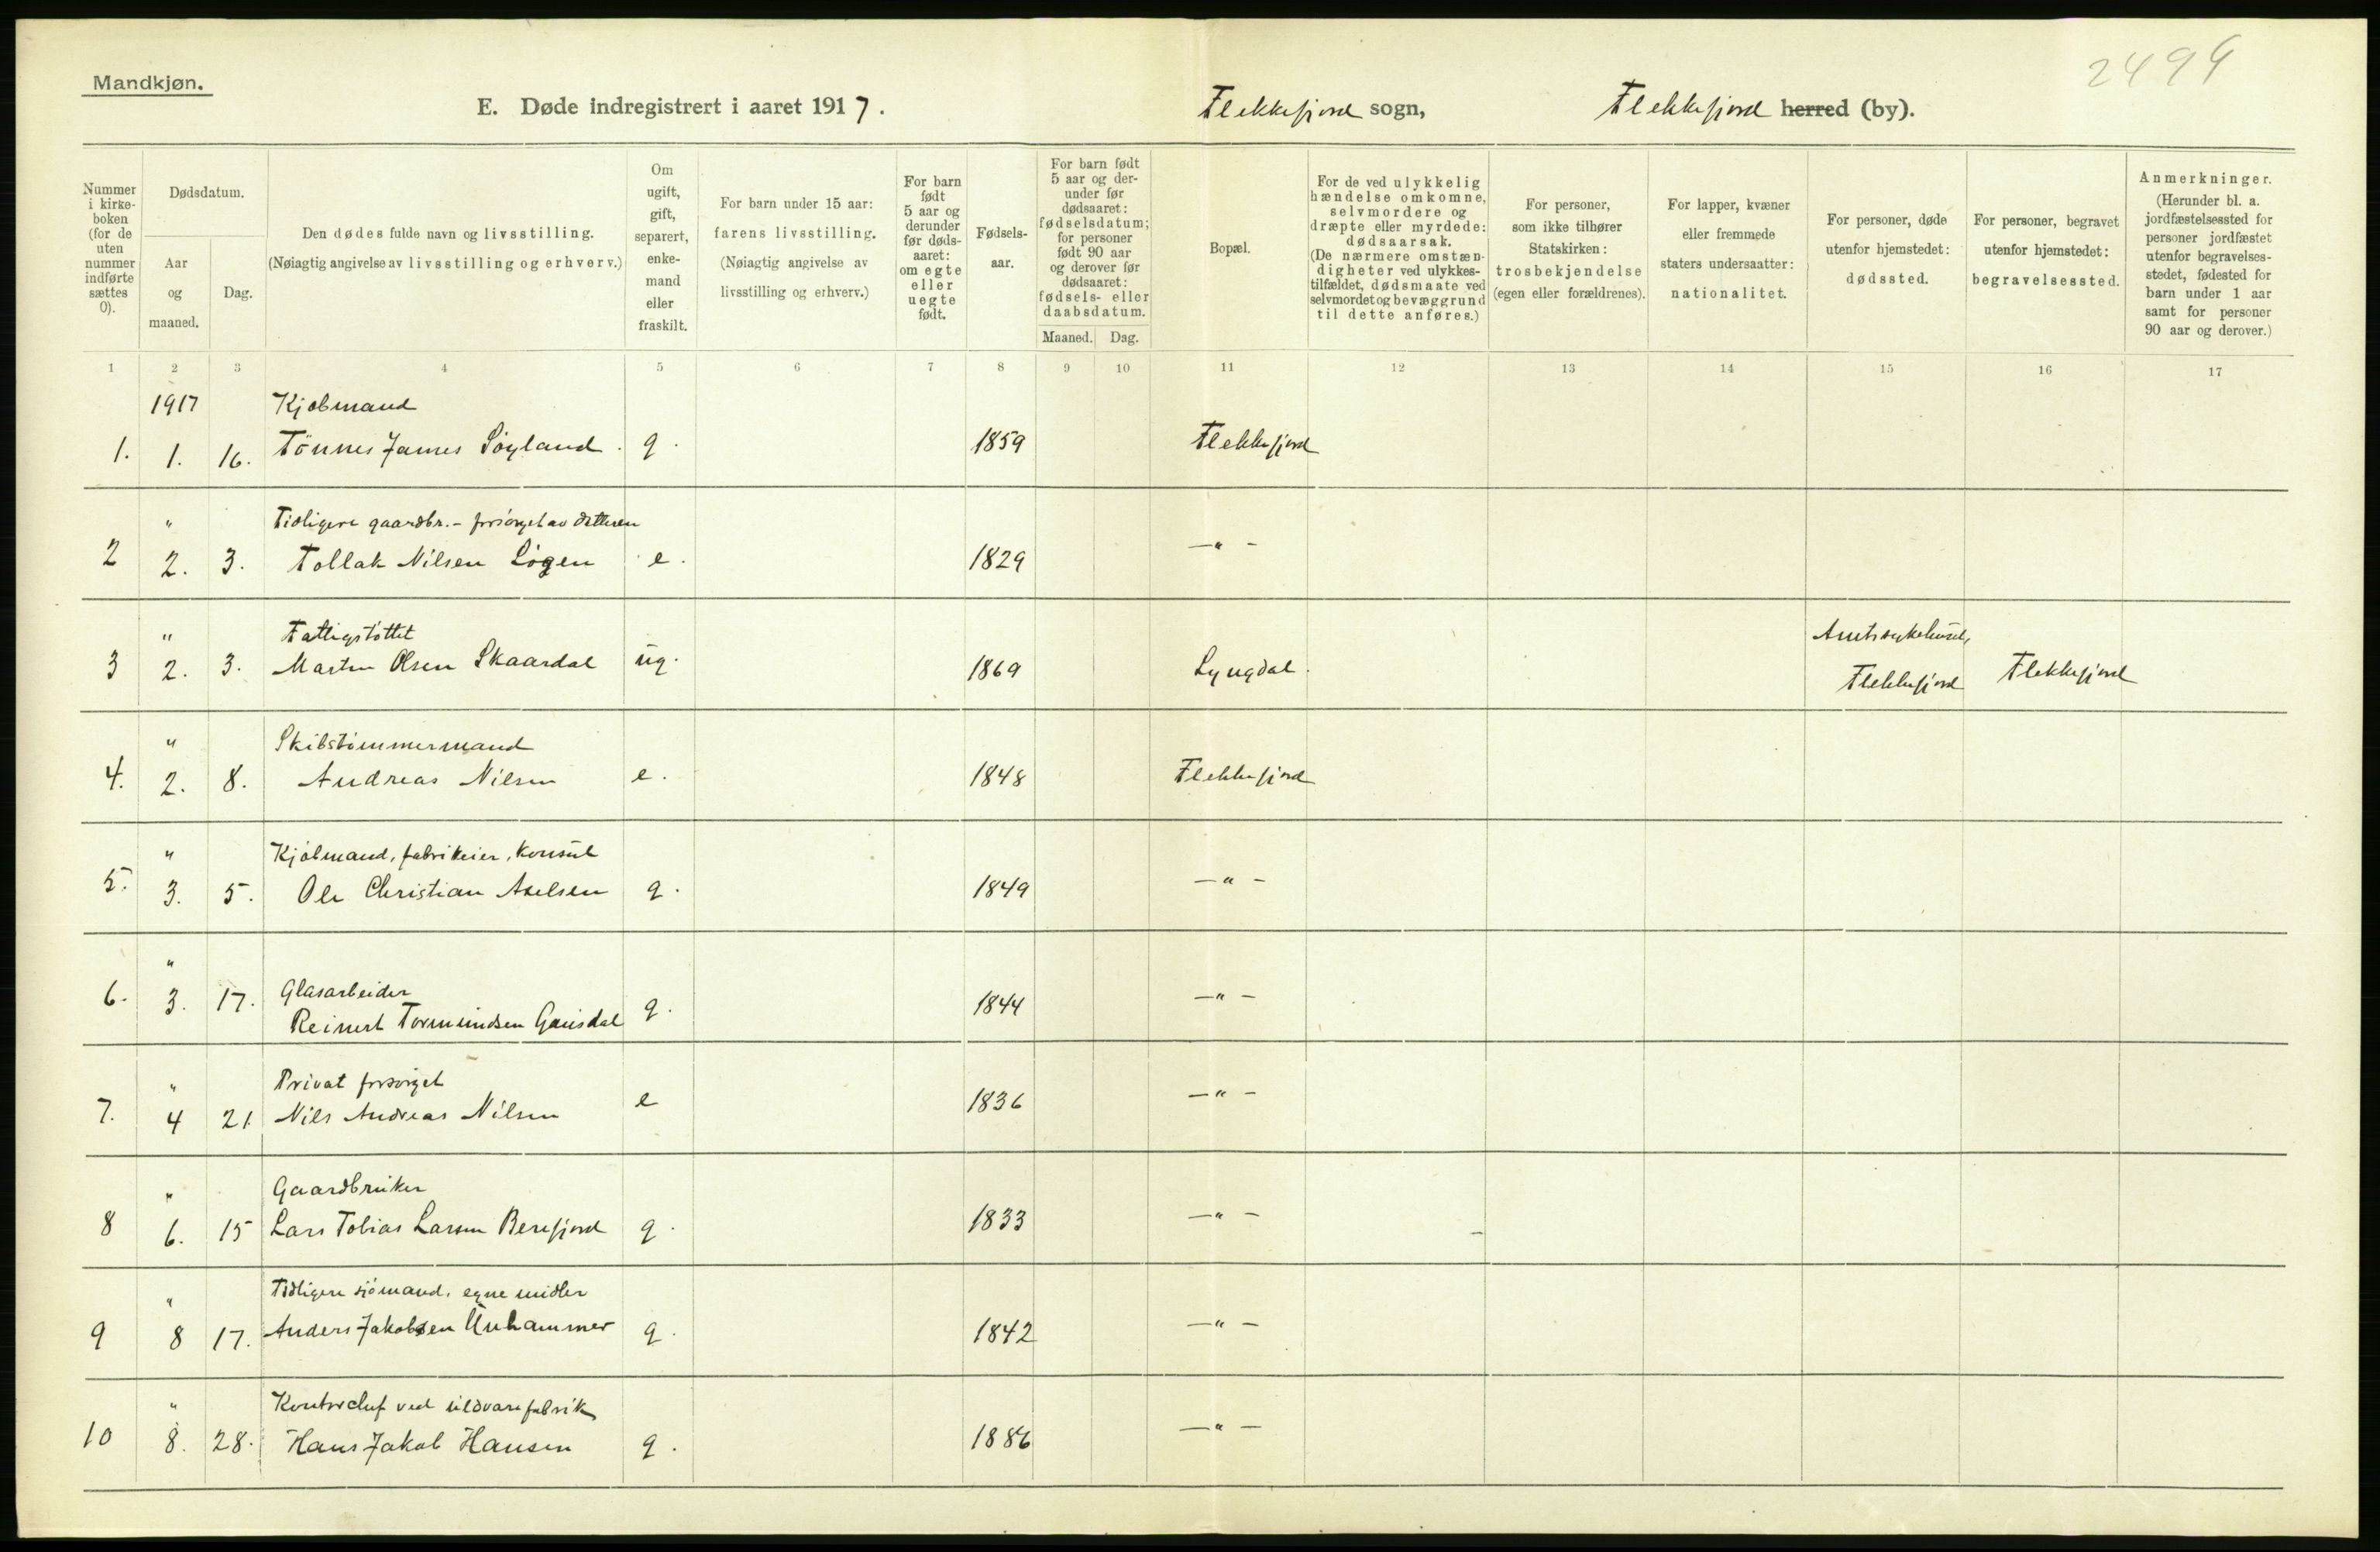 Mandkjøn.
2494
E. Døde indregistrert i aaret 1917. Flekkefjord sogn, Flekkefjord herred (by).
Nummer i kirke-boken (for de uten nummer indførte sættes 0).
Dødsdatum.
Aar og maaned.
Dag.
Den dødes fulde navn og livsstilling.
(Nøiagtig angivelse av livsstilling og erhverv.)
Om ugift, gift, separert, enke-mand eller fraskilt.
For barn under 15 aar:
farens livsstilling.
(Nøiagtig angivelse av
livsstilling og erhverv.)
For barn født 5 aar og derunder før døds-aaret: om egte eller uegte født.
Fødsels-aar.
For barn født 5 aar og der-under før dødsaaret: fødselsdatum; for personer født 90 aar og derover før dødsaaret: fødsels- eller daabsdatum.
Maaned. Dag.
Bopæl.
For de ved ulykkelig hændelse omkomne, selvmordere og dræpte eller myrdede: dødsaarsak. (De nærmere omstæn-digheter ved ulykkes-tilfældet, dødsmaate ved selvmordet og bevæggrund til dette anføres.)
For personer, som ikke tilhører Statskirken: trosbekjendelse (egen eller forældrenes).
For lapper, kvæner eller fremmede staters undersaatter: nationalitet.
For personer, døde utenfor hjemstedet: dødssted.
For personer, begravet utenfor hjemstedet: begravelsessted.
Anmerkninger. (Herunder bl. a. jordfæstelsessted for personer jordfæstet utenfor begravelses-stedet, fødested for barn under 1 aar samt for personer 90 aar og derover.)
1 2 3 4 5 6 7 8 9 10 11 12 13 14 15 16 17
1917 Kjøbmand
1. 1. 16. Tönnes James Söyland. g. 1859 Flekkefjord
" Tidligere gaardbr. - forsørget av datteren
2 2. 3. Tollak Nilsen Løgen e. 1829 —"—
" Fattigstøttet Amtssykehuset,
3 2. 3. Martin Olsen Skaardal ug. 1869 Lyngdal. Flekkefjord Flekkefjord
" Skibstømmermand
4. 2. 8. Andreas Nilsen e. 1848 Flekkefjord
" Kjøbmand, fabrikeier, konsul
5. 3. 5. Ole Christian Axelsen g. 1849 —"—
" Glasarbeider
6. 3. 17. Reinert Tormundsen Gausdal g. 1844 —"—
" Privat forsørget
7. 4 21 Nils Andreas Nilsen e 1836 —"—
" Gaardbruker
8 6. 15 Lars Tobias Larsen Berefjord g. 1833 —"—
" Tidligere sjømand, egne midler
9 8 17. Anders Jakobsen Unhammer g. 1842 —"—
" Kontorchef ved uldvarefabrik
10 8. 28. Hans Jakob Hansen g. 1886 —"—